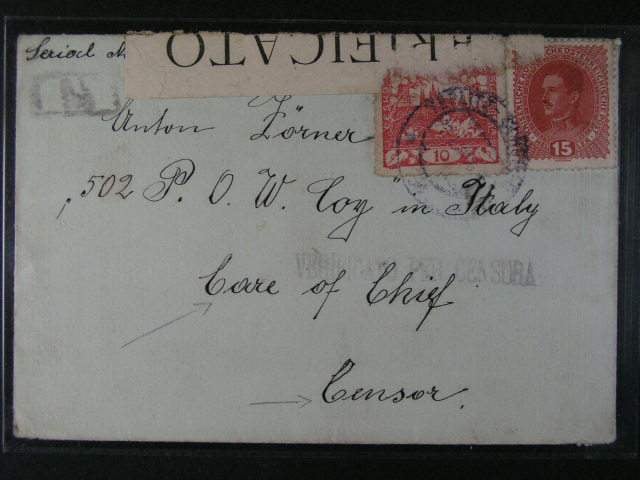 Serial
ERIFICATO
Anton Zörner
10
15
502 P. O. W. Coy in Italy
Care of Chief
Censor.